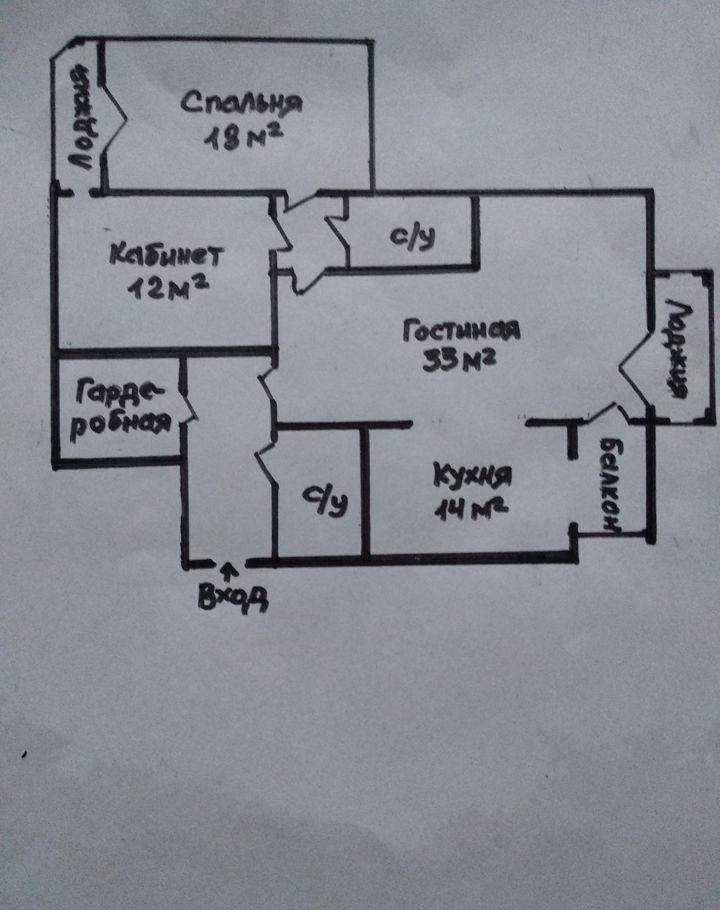 Лоджия
Спальня
18 м²
Кабинет
12 м²
с/у
Гостиная
33 м²
Лоджия
Гарде-
робная
с/у
Кухня
14 м²
Балкон
Вход